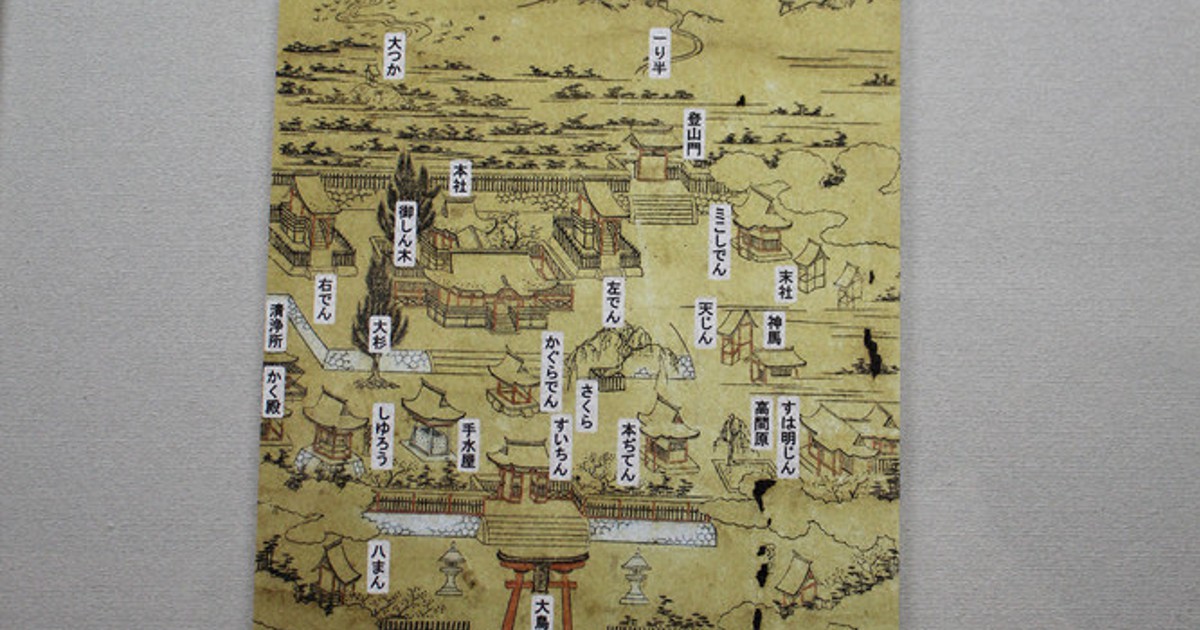 大つか
一り半
登山門
本社
御しん木
ミこしでん
末社
右でん
左でん
清浄所
大杉
天じん
神馬
かぐらでん
かく殿
さくら
しゆろう
手水屋
すいちん
本ぢてん
高間原
すは明じん
八まん
大鳥